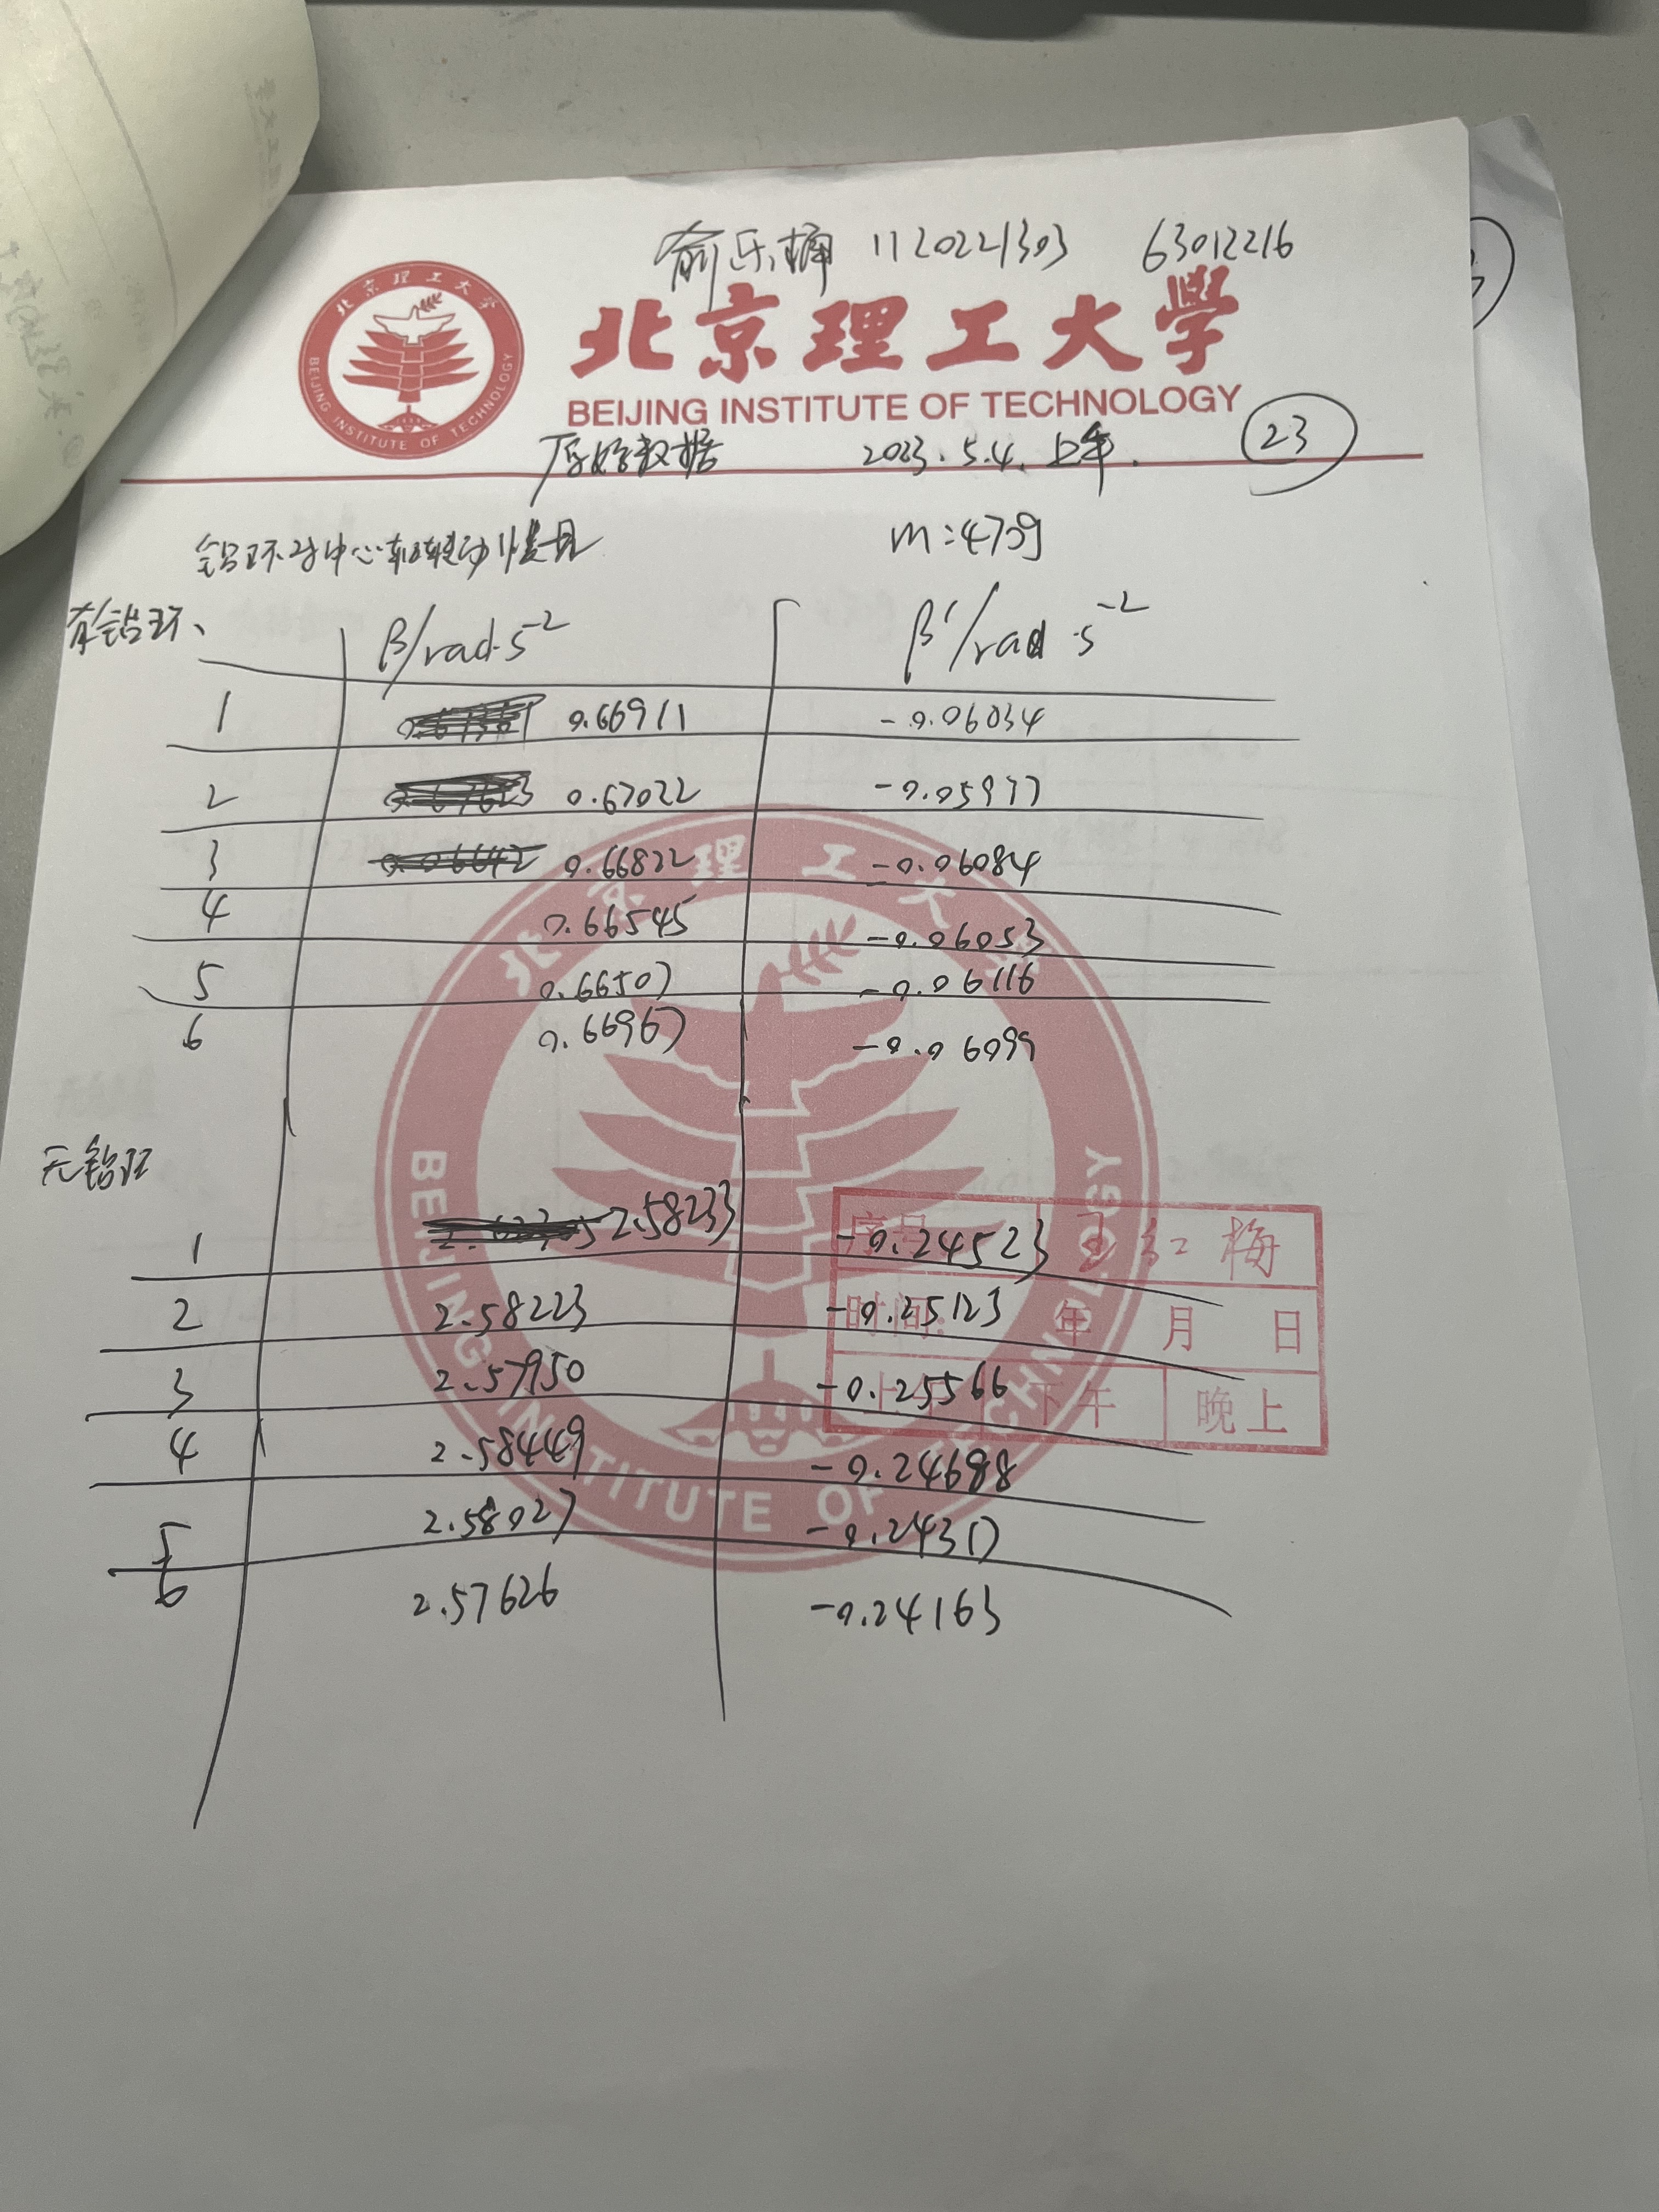 俞乐楠 1120221303 63012216
北京理工大學
BEIJING INSTITUTE OF TECHNOLOGY
北京理工大学
BEIJING INSTITUTE OF TECHNOLOGY
原始数据 2023.5.4.上午. 23
铝环对中心轴转动惯量 m:475g
有铝环、 β/rad·s⁻² β'/rad·s⁻²
1 0.66911 -0.06034
2 0.67022 -0.05977
3 0.66822 -0.06084
4 0.66545 -0.06053
5 0.66507 -0.06116
6 0.66967 -0.06099
无铝环
1 2.58233 -0.24523
2 2.58223 -0.25123
3 2.57950 -0.25566
4 2.58449 -0.24688
5 2.58027 -0.24317
6 2.57626 -0.24163
北京理工大学
1940
BEIJING INSTITUTE OF TECHNOLOGY
序号 王红梅
时间: 年 月 日
上午 下午 晚上